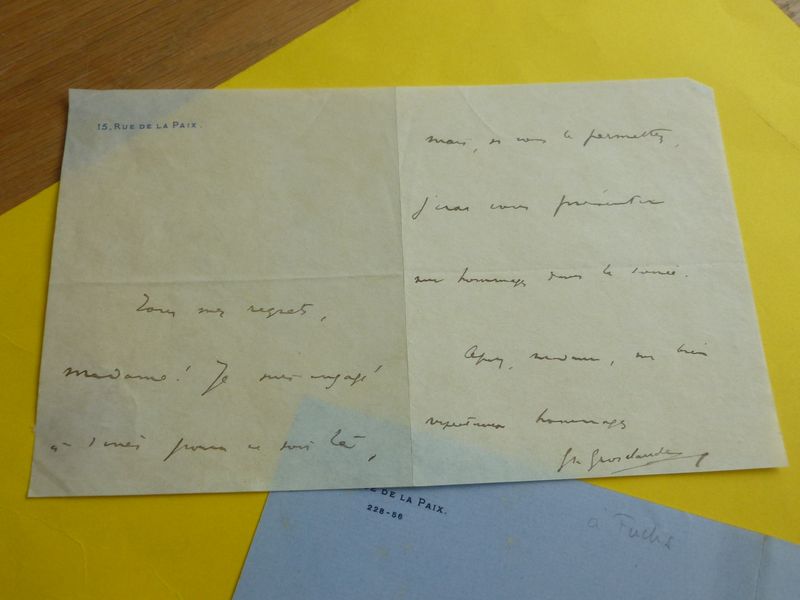 15, RUE DE LA PAIX.
Tous mes regrets,
Madame! Je suis engagé
à dîner pour ce soir là,
mais, si vous le permettez,
j'irai vous présenter
mes hommages dans la soirée.
Agréez, madame, mes bien
respectueux hommages
Gn Grosclaude
DE LA PAIX.
228-56
à Fuchs